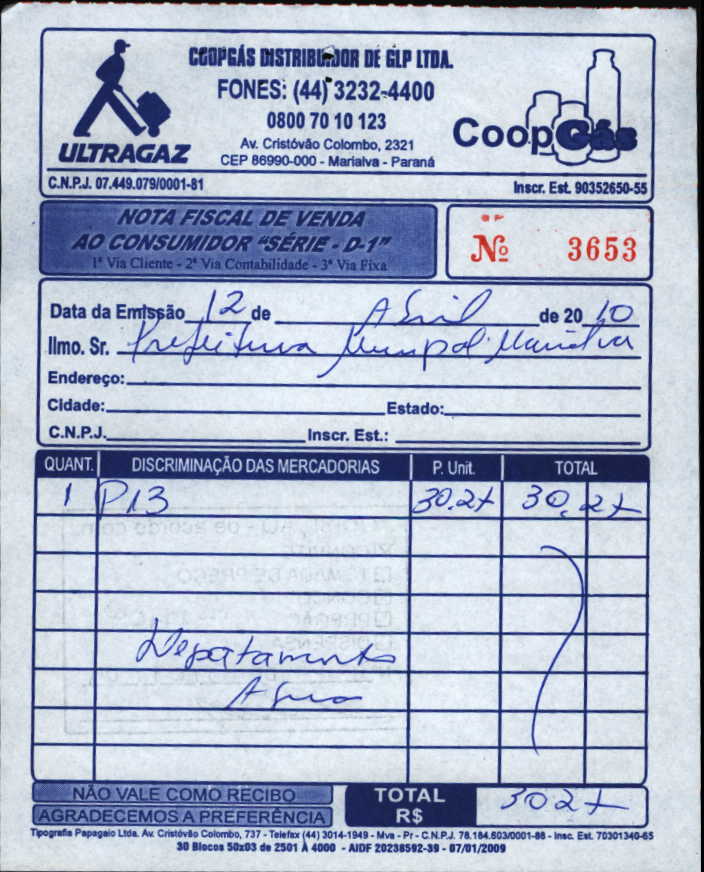 COOPGÁS DISTRIBUIDOR DE GLP LTDA.
FONES: (44) 3232-4400
0800 70 10 123
Av. Cristóvão Colombo, 2321
CEP 86990-000 - Marialva - Paraná
ULTRAGAZ
CoopGás
C.N.P.J. 07.449.079/0001-81
Inscr. Est. 90352650-55
NOTA FISCAL DE VENDA
AO CONSUMIDOR "SÉRIE - D-1"
1ª Via Cliente - 2ª Via Contabilidade - 3ª Via Fixa
Nº 3653
Data da Emissão 12 de Abril de 20 10
Ilmo. Sr. Prefeitura Municipal Marialva
Endereço:
Cidade: Estado:
C.N.P.J. Inscr. Est.:
QUANT. DISCRIMINAÇÃO DAS MERCADORIAS P. Unit. TOTAL
1 P13 30.27 30,27
Depatamento
Agua
NÃO VALE COMO RECIBO
AGRADECEMOS A PREFERÊNCIA
TOTAL R$ 3027
Tipografia Papagaio Ltda. Av. Cristóvão Colombo, 737 - Telefax (44) 3014-1949 - Mva - Pr - C.N.P.J. 78.184.603/0001-88 - Insc. Est. 70301340-65
30 Blocos 50x03 de 2501 À 4000 - AIDF 20238592-39 - 07/01/2009